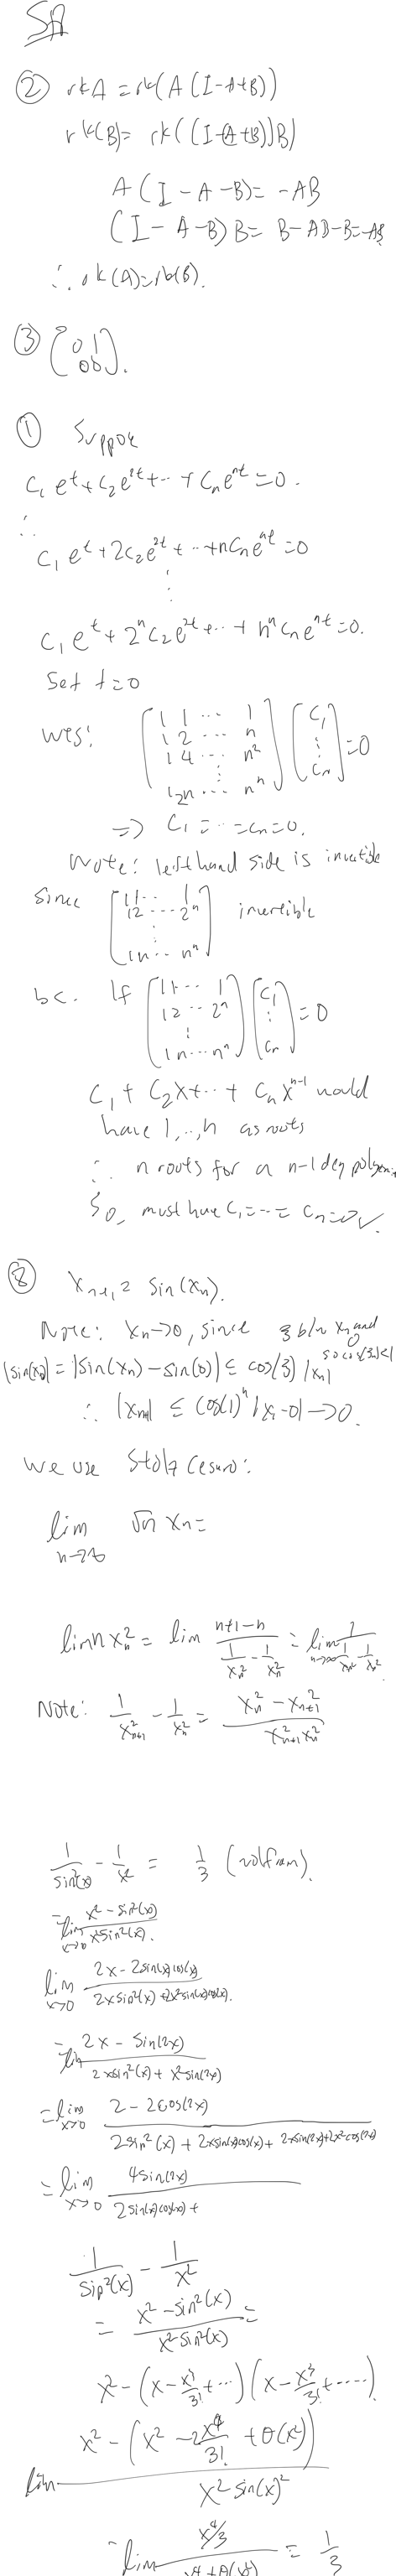 SA
② rkA = rk(A(I-A+B))
rk(B) = rk((I-(A+B))B)
A(I-A-B) = -AB
(I-A-B)B = B-AB-B = -AB
∴ rk(A)=rk(B).
③ (0 1
0 0).
① Suppose
c₁e^t + c₂e^{2t} + ... + cₙe^{nt} = 0.
∴
c₁e^t + 2c₂e^{2t} + ... + ncₙe^{nt} = 0
⋮
c₁e^t + 2ⁿc₂e^{2t} + ... + nⁿcₙe^{nt} = 0.
Set t=0
(1 1 ... 1
1 2 ... n
1 4 ... n²
⋮
1 2ⁿ ... nⁿ) (c₁ ⋮ cₙ) = 0
=> c₁ = ... = cₙ = 0.
Note: left hand side is invertible
since (1 1 ... 1
1 2 ... 2ⁿ invertible
⋮
1 n ... nⁿ)
bc. If (1 1 ... 1
1 2 ... 2ⁿ
⋮
1 n ... nⁿ) (c₁ ⋮ cₙ) = 0
c₁ + c₂x + ... + cₙx^{n-1} would
have 1,..,n as roots
∴ n roots for a n-1 deg
So, must have c₁ = ... = cₙ = 0 ✓.
⑧ x_{n+1} = sin(xₙ).
Note: xₙ→0, since ξ b/w xₙ and 0
|sin(xₙ)| = |sin(xₙ) - sin(0)| ≤ cos(ξ)|xₙ|
∴ |x_{n+1}| ≤ cos(1)ⁿ |x₁-0| → 0.
We use Stolz Cesaro:
lim √n xₙ =
n→∞
lim n xₙ² = lim (n+1-n)/(1/xₙ² - 1/xₙ²) = lim_{n→∞} 1/(1/xₙ² - 1/xₙ²)
Note: 1/x²_{n+1} - 1/xₙ² = (xₙ² - x_{n+1}²)/(x²_{n+1} xₙ²)
1/sin²(x) - 1/x² = 1/3 (wolfram).
= lim_{x→0} (x² - sin²(x))/(x² sin²(x)).
lim_{x→0} (2x - 2sin(x)cos(x))/(2x sin²(x) + 2x² sin(x)cos(x)).
= lim (2x - sin(2x))/(2x sin²(x) + x² sin(2x))
= lim_{x→0} (2 - 2cos(2x))/(2sin²(x) + 2x sin(x)cos(x) + 2x sin(2x) + 2x² cos(2x))
= lim_{x→0} 4sin(2x)/(2sin(x)cos(x) +
1/sin²(x) - 1/x²
= (x² - sin²(x))/(x² sin²(x)) =
x² - (x - x³/3! + ...)(x - x³/3! + ....)
lim (x² - (x² - 2x⁴/3! + O(x²)))/(x² sin(x)²)
= lim (x⁴/3)/(x⁴ + O(x⁶)) = 1/3